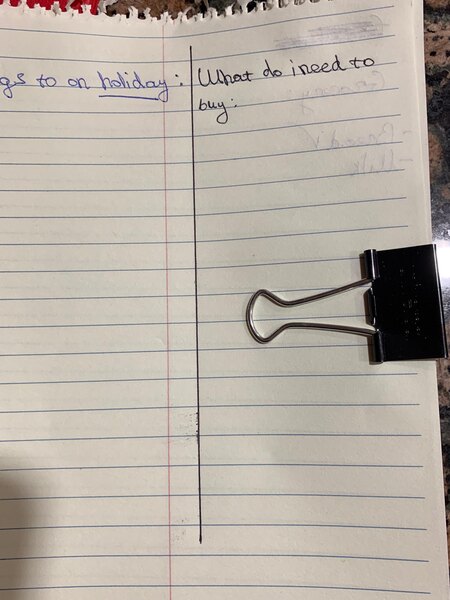 gs to on holiday :
What do i need to
buy :